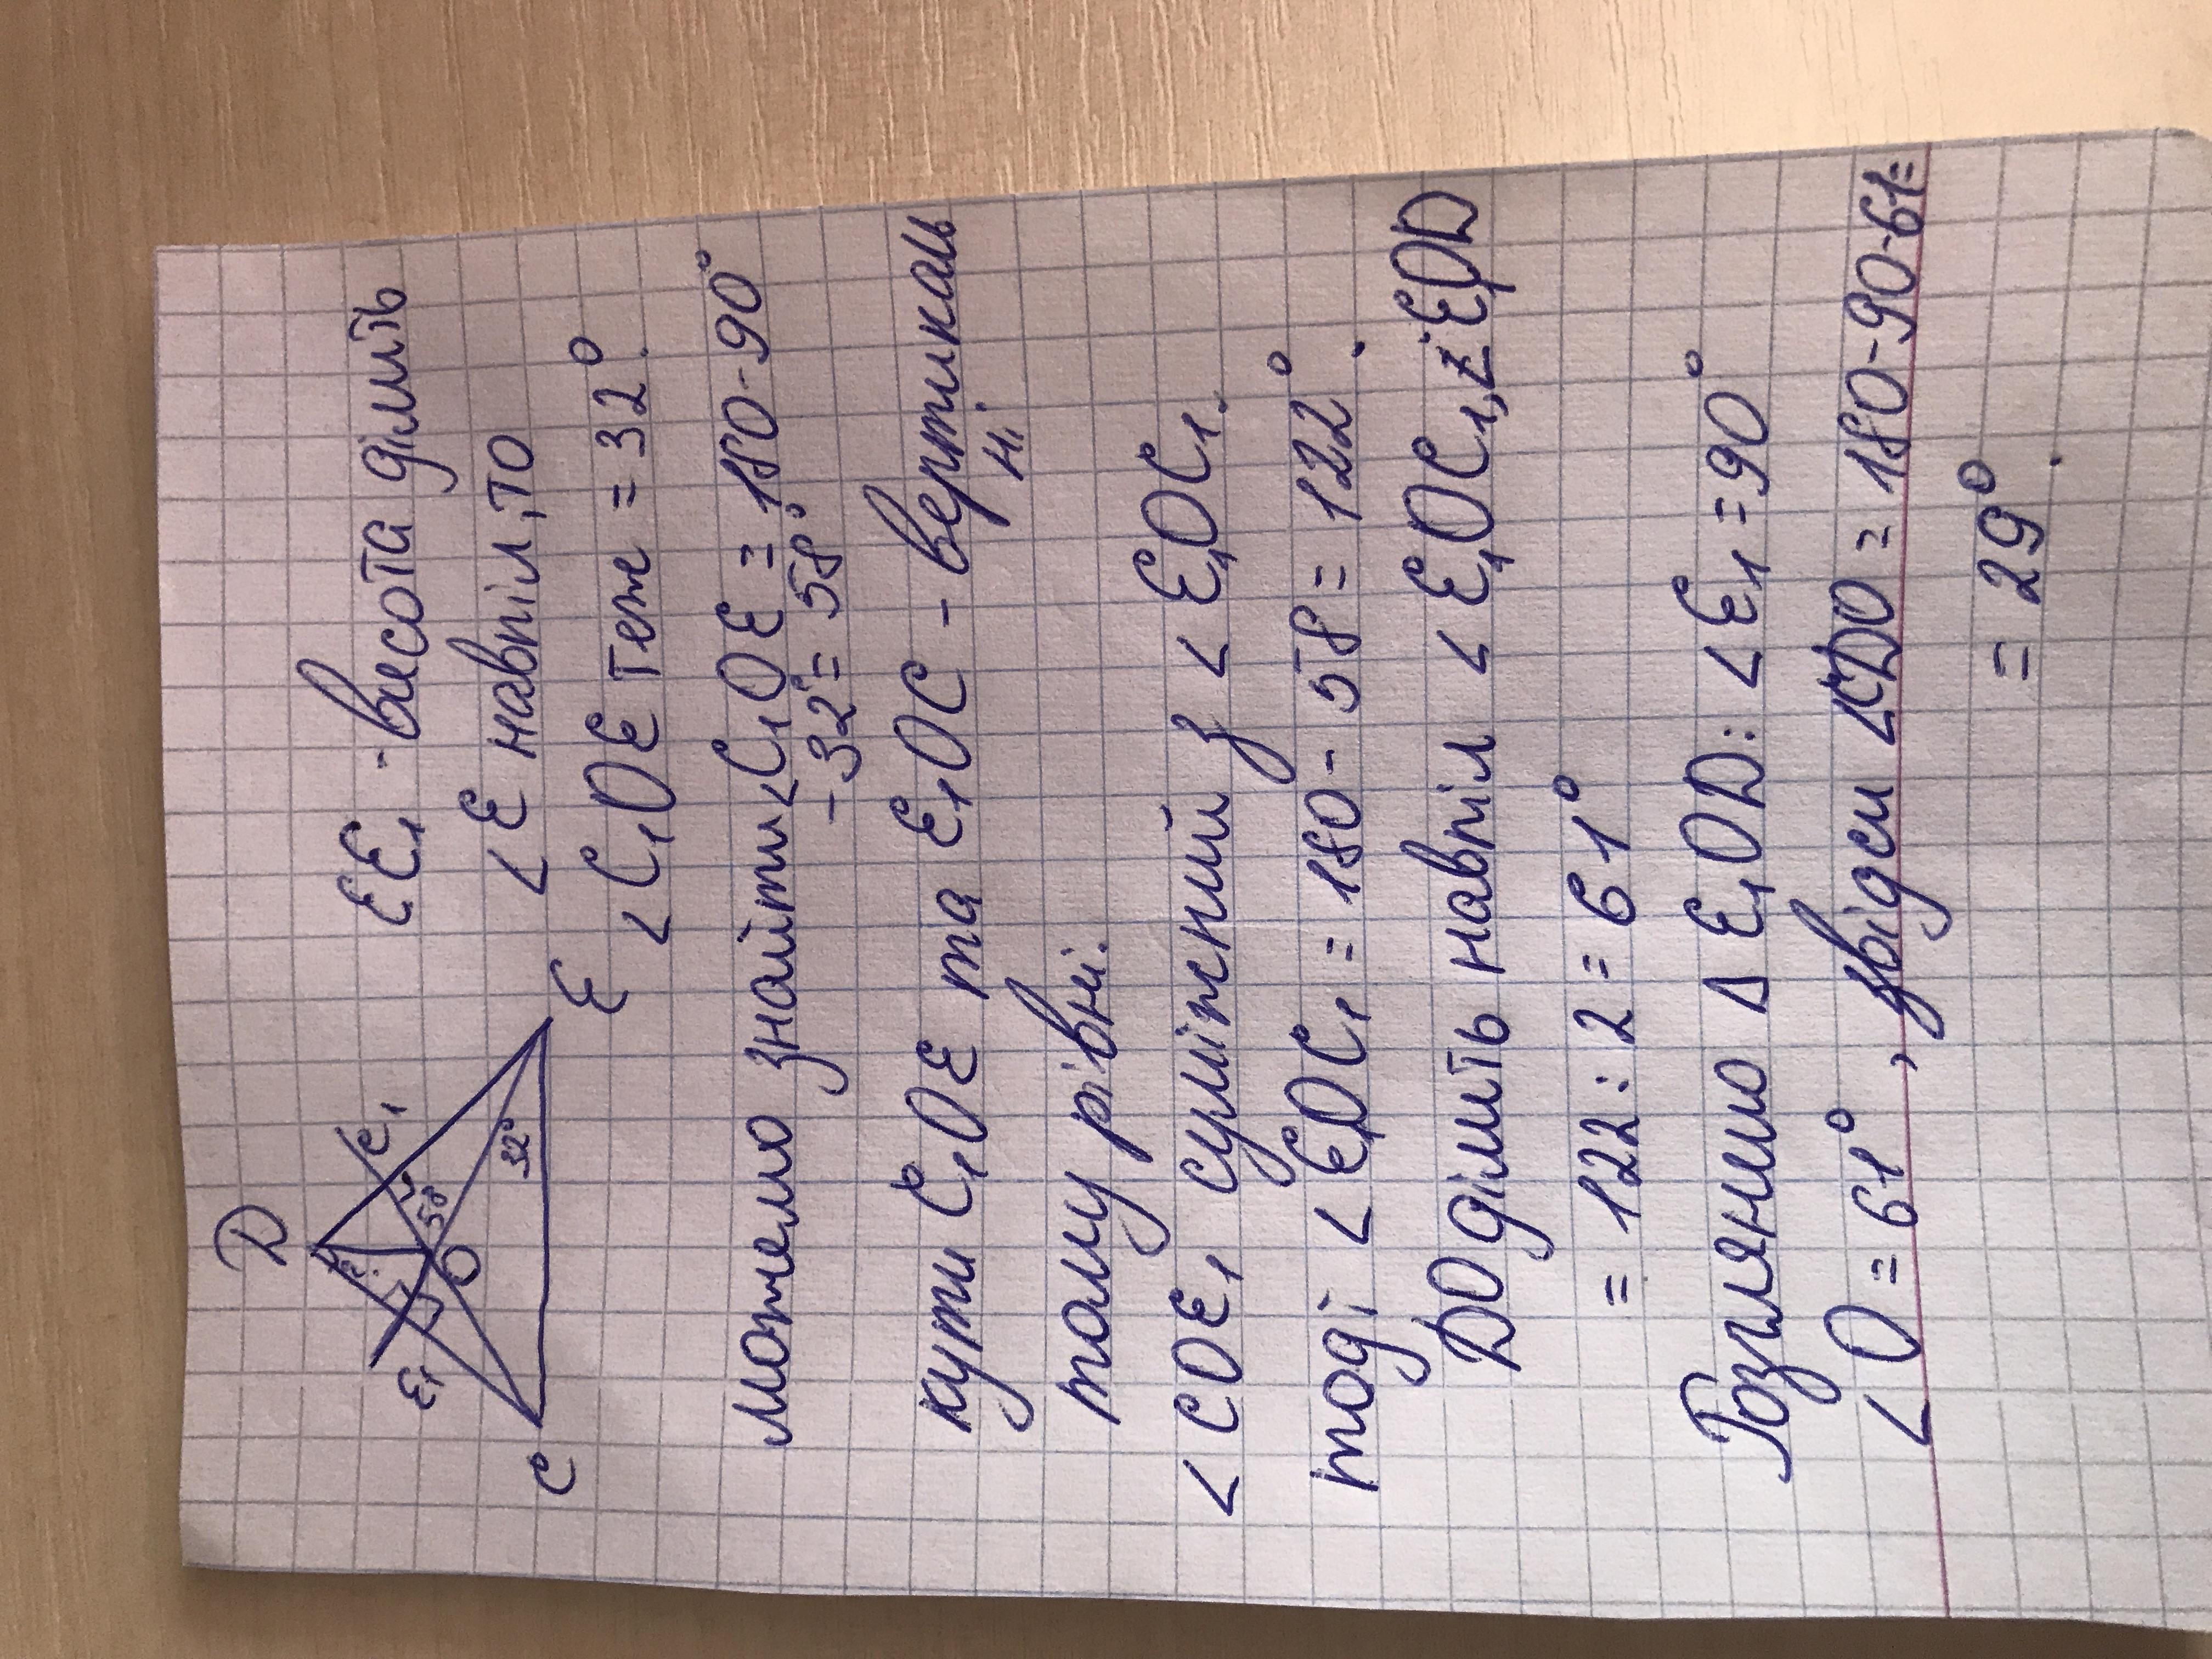 D
E₁
C₁
58°
32°
O
C
E
EE₁ - висота ділить
∠E навпіл, то
∠C₁OE теж = 32°.
можемо знайти ∠C₁OE = 180-90°
-32° = 58°.
кути C₁OE та E₁OC - вертикаль
ні
тому рівні.
∠COE₁ суміжний з ∠E₁OC₁.
тоді ∠E₁OC₁ = 180-58 = 122°.
DO ділить навпіл ∠E₁OC₁, ∠E₁OD
= 122:2 = 61°
Розглянемо Δ E₁OD: ∠E₁ = 90°
∠O = 61°, звідси ∠CDO = 180-90-61=
= 29°.